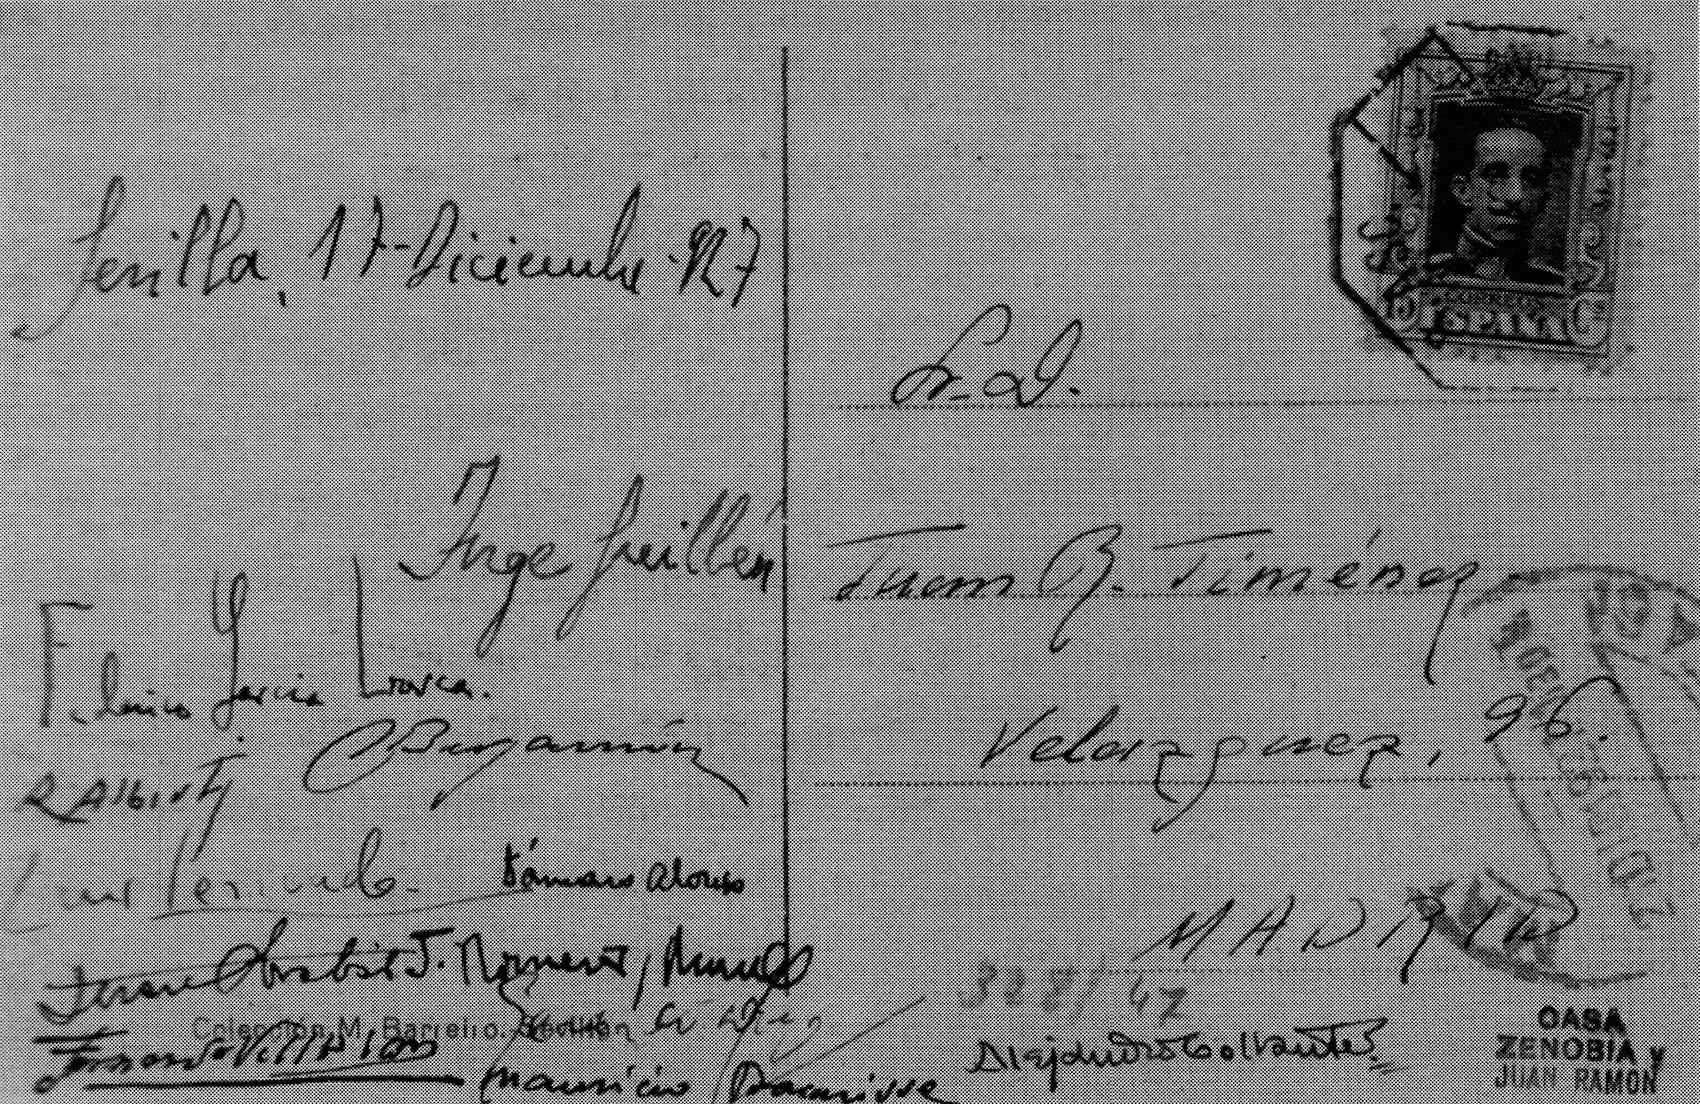 Sevilla, 17-Diciembre-927
Jorge Guillén
Federico García Lorca.
R Alberti
Bergamín
Luis Cernuda
Dámaso Alonso
J. Romero y Murube
Colección M. Barreiro. Sevilla
Fernando Villalón
Mauricio Bacarisse
CORREOS
ESPAÑA
Sr. D.
Juan R. Jiménez
Velazquez, 96.
MADRID
328/47
Alejandro Collantes
CASA
ZENOBIA y
JUAN RAMON